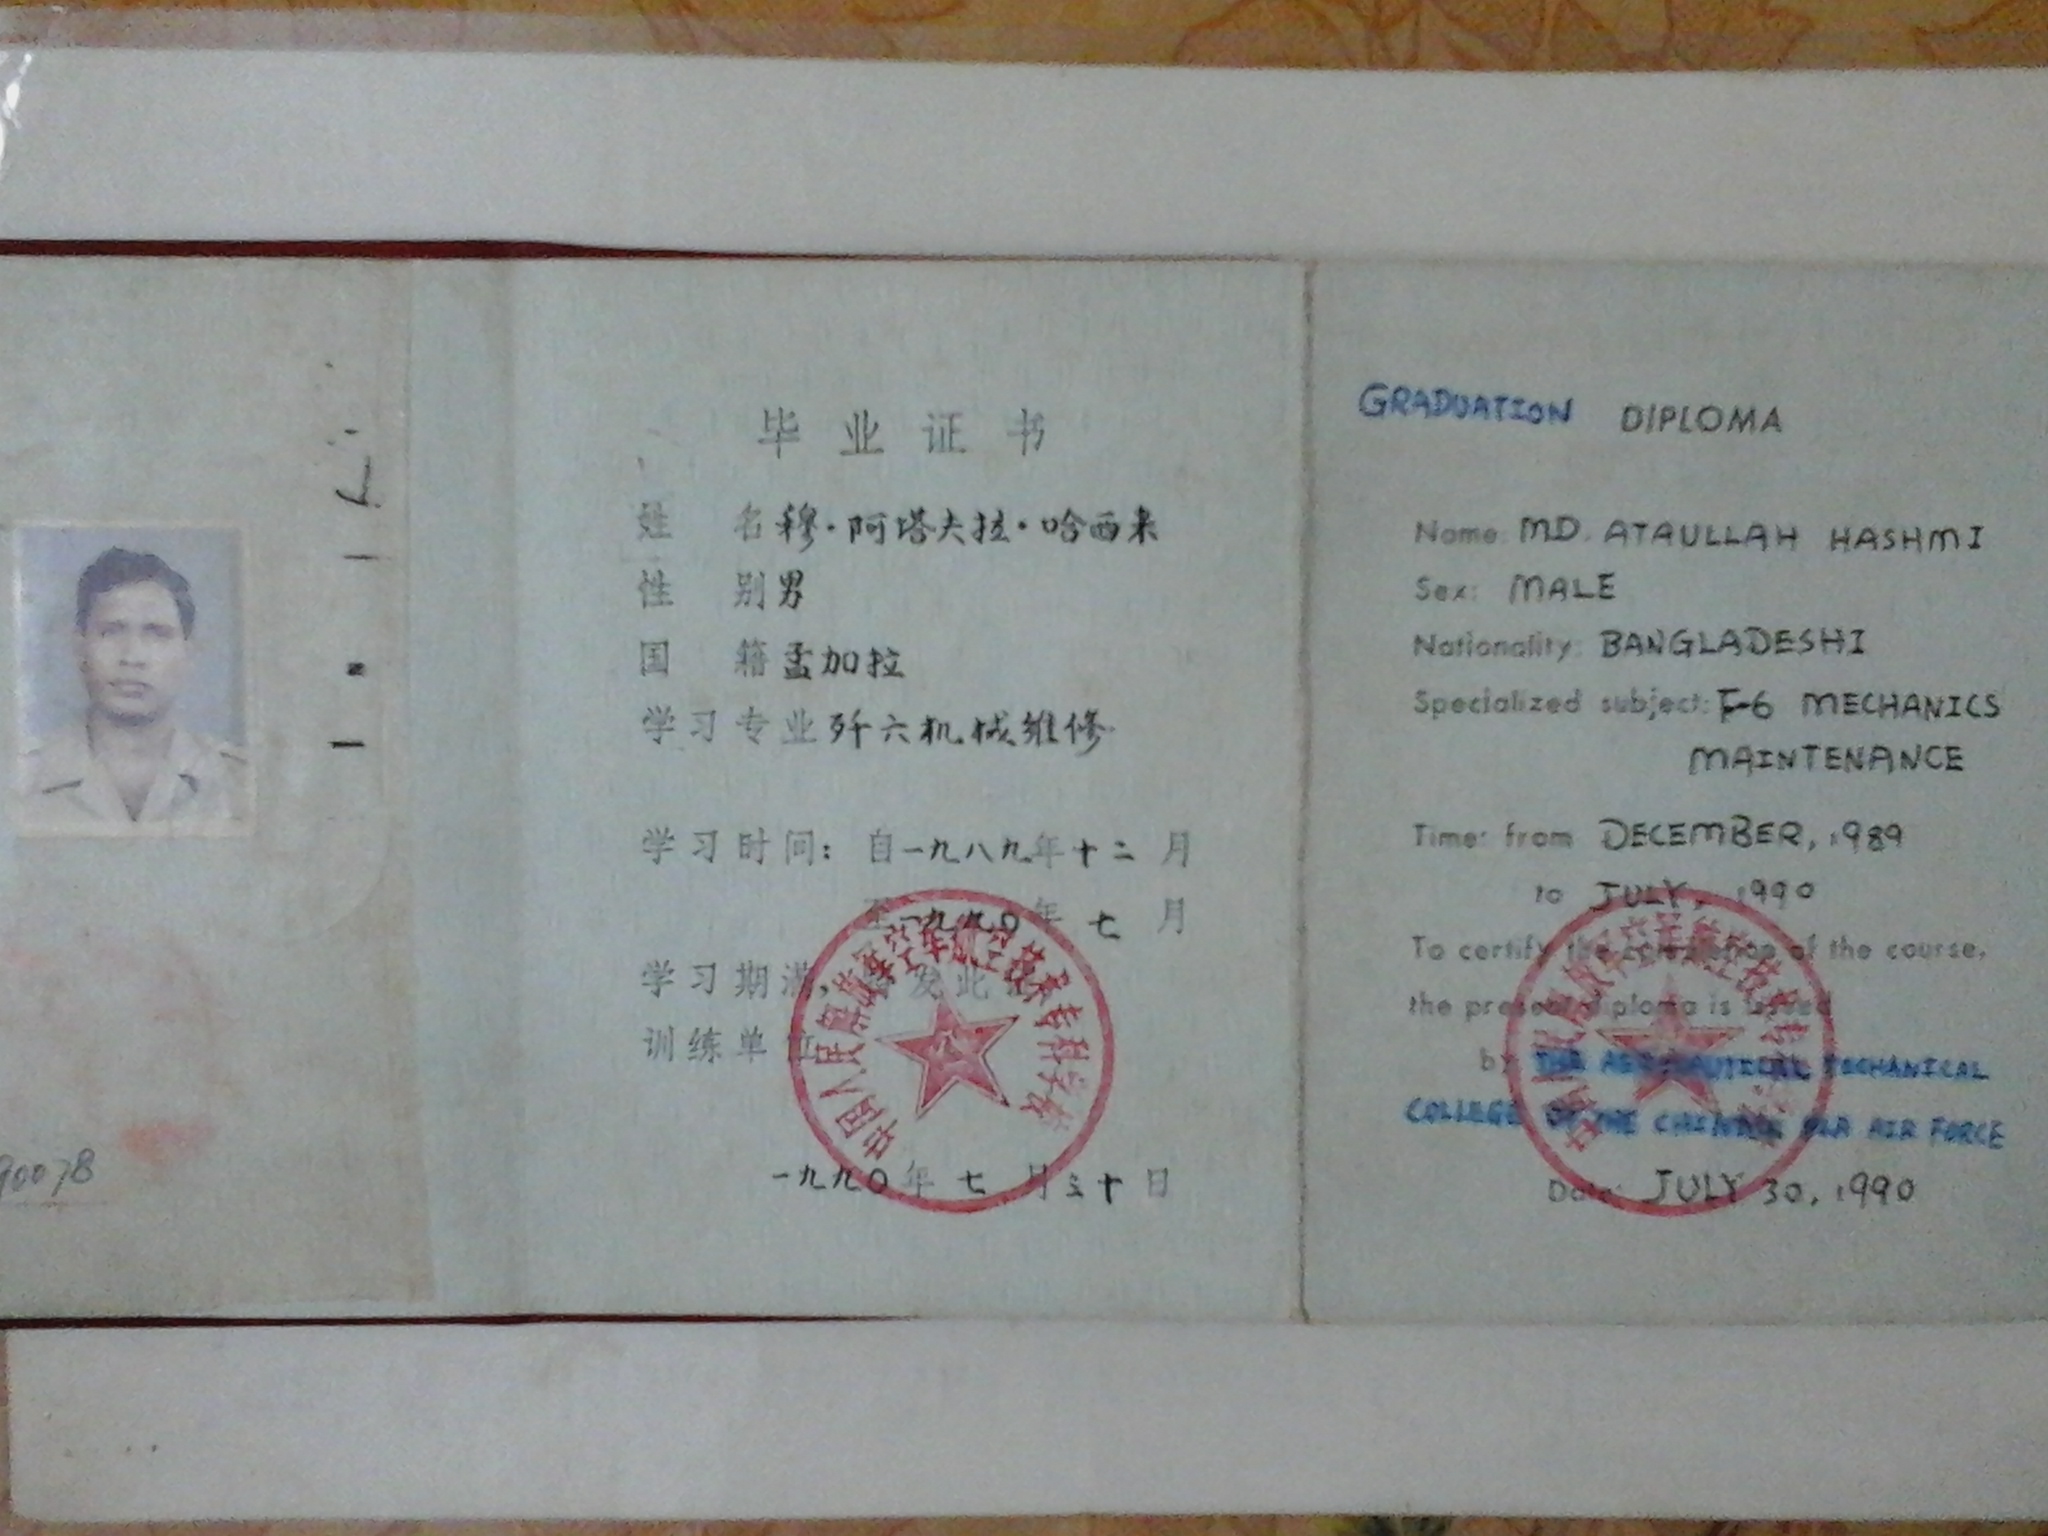 90078
毕业证书
姓 名 穆·阿塔夫拉·哈西米
性 别 男
国 籍 孟加拉
学习专业 歼六机械维修
学习时间：自一九八九年十二月
至一九九〇年七月
学习期满，发此
训练单
中国人民解放军空军航空技术专科学校
一九九〇年七月三十日
GRADUATION DIPLOMA
Name: MD. ATAULLAH HASHMI
Sex: MALE
Nationality: BANGLADESHI
Specialized subject: F-6 MECHANICS
MAINTENANCE
Time: from DECEMBER, 1989
to JULY, 1990
To certify the of the course,
the present diploma is issued
by THE AERONAUTICAL TECHNICAL
COLLEGE OF THE CHINESE PLA AIR FORCE
Date: JULY 30, 1990